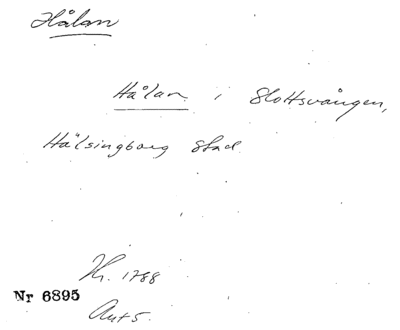 Hålan
Hålan i Slottsvången,
Hälsingborg stad
Kr. 1788
Nr 6895
Ant 5.